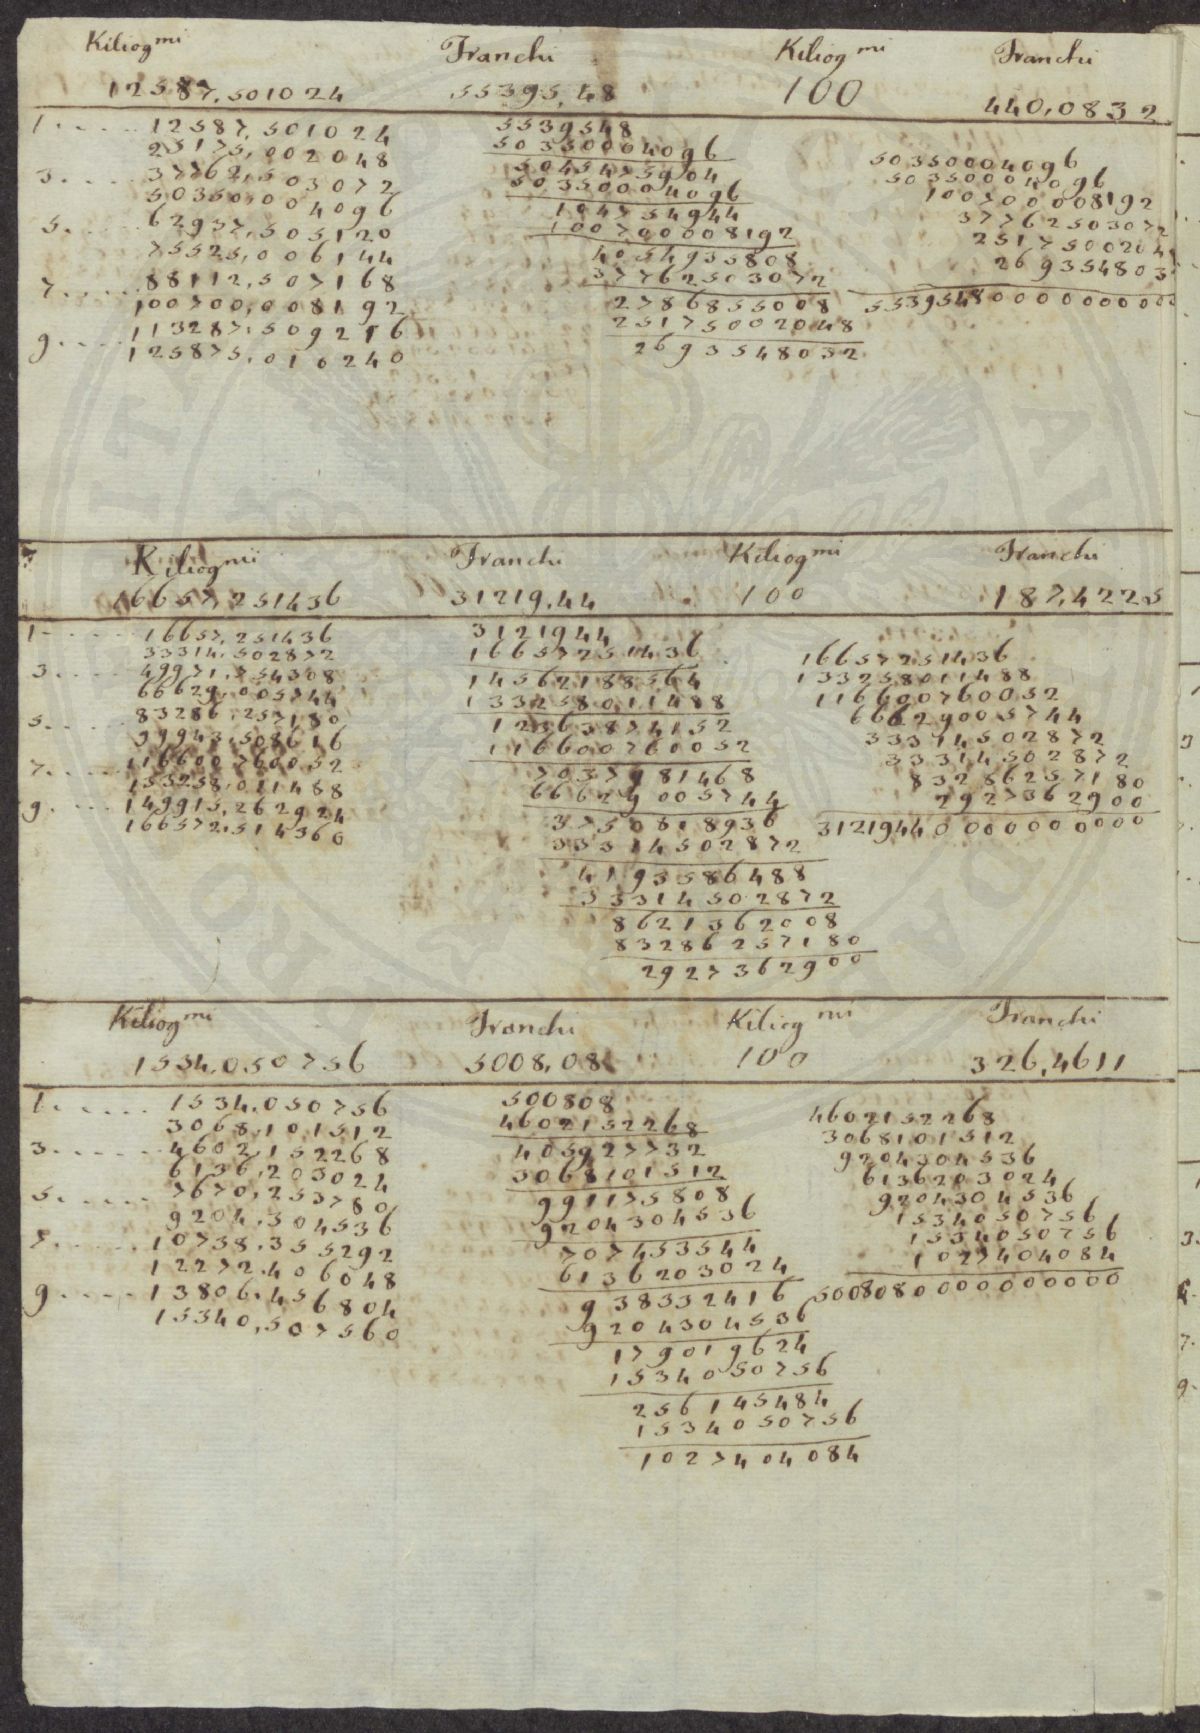 Kiliog mi Franchi Kiliog mi Franchi
12587,501024 55395,48 100 440,0832
1. .... 12587,501024
25175,002048
3. .... 37762,503072
50350,004096
5. .... 62937,505120
75525,006144
7. .... 88112,507168
100700,008192
9. .... 113287,509216
125875,010240
5539548
50350004096
50454759904
50350004096
104754944
100700008192
4054935808
37762503072
2786855008
25175002048
2693548032
50350004096
50350004096
100700008192
37762503072
25175002048
269354803
5539548000000000
Kiliog mi Franchi Kiliog mi Franchi
16657,251436 31219,44 100 187,4225
1- .... 16657,251436
33314,502872
3. .... 49971,754308
66629,005744
5. .... 83286,257180
99943,508616
7. .... 116600,760052
133258,011488
9. .... 149915,262924
166572,514360
3121944
16657251436
14562188564
133258011488
12363874152
116600760052
7037981468
66629005744
3750818936
33314502872
4193586488
33314502872
8621362008
83286257180
2927362900
16657251436
133258011488
116600760052
66629005744
33314502872
33314502872
83286257180
2927362900
3121944000000000
Kiliog mi Franchi Kiliog mi Franchi
1534,050756 5008,08 100 326,4611
1. .... 1534,050756
3068,101512
3. .... 4602,152268
6136,203024
5. .... 7670,253780
9204,304536
7. .... 10738,355292
12272,406048
9. .... 13806,456804
15340,507560
500808
4602152268
405927732
3068101512
991175808
9204304536
707453544
6136203024
938332416
9204304536
179019624
1534050756
256145484
1534050756
1027404084
4602152268
3068101512
9204304536
6136203024
9204304536
1534050756
1534050756
1027404084
500808000000000